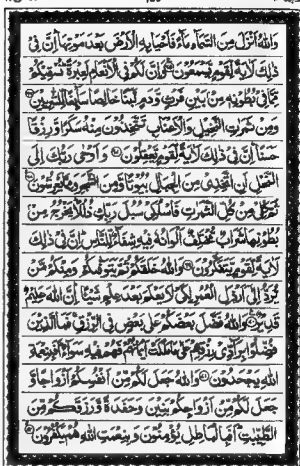 وَاللّٰهُ اَنْزَلَ مِنَ السَّمَآءِ مَآءً فَاَحْيَا بِهِ الْاَرْضَ بَعْدَ مَوْتِهَا اِنَّ فِيْ
ذٰلِكَ لَاٰيَةً لِّقَوْمٍ يَّسْمَعُوْنَ وَاِنَّ لَكُمْ فِي الْاَنْعَامِ لَعِبْرَةً نُسْقِيْكُمْ
مِّمَّا فِيْ بُطُوْنِهٖ مِنْ بَيْنِ فَرْثٍ وَّدَمٍ لَّبَنًا خَالِصًا سَآئِغًا لِّلشّٰرِبِيْنَ
وَمِنْ ثَمَرٰتِ النَّخِيْلِ وَالْاَعْنَابِ تَتَّخِذُوْنَ مِنْهُ سَكَرًا وَّرِزْقًا
حَسَنًا اِنَّ فِيْ ذٰلِكَ لَاٰيَةً لِّقَوْمٍ يَّعْقِلُوْنَ وَاَوْحٰى رَبُّكَ اِلَى
النَّحْلِ اَنِ اتَّخِذِيْ مِنَ الْجِبَالِ بُيُوْتًا وَّمِنَ الشَّجَرِ وَمِمَّا يَعْرِشُوْنَ
ثُمَّ كُلِيْ مِنْ كُلِّ الثَّمَرٰتِ فَاسْلُكِيْ سُبُلَ رَبِّكِ ذُلُلًا يَخْرُجُ مِنْ
بُطُوْنِهَا شَرَابٌ مُّخْتَلِفٌ اَلْوَانُهٗ فِيْهِ شِفَآءٌ لِّلنَّاسِ اِنَّ فِيْ ذٰلِكَ
لَاٰيَةً لِّقَوْمٍ يَّتَفَكَّرُوْنَ وَاللّٰهُ خَلَقَكُمْ ثُمَّ يَتَوَفّٰىكُمْ وَمِنْكُمْ مَّنْ
يُّرَدُّ اِلٰى اَرْذَلِ الْعُمُرِ لِكَيْ لَا يَعْلَمَ بَعْدَ عِلْمٍ شَيْئًا اِنَّ اللّٰهَ عَلِيْمٌ
قَدِيْرٌ وَاللّٰهُ فَضَّلَ بَعْضَكُمْ عَلٰى بَعْضٍ فِي الرِّزْقِ فَمَا الَّذِيْنَ
فُضِّلُوْا بِرَآدِّيْ رِزْقِهِمْ عَلٰى مَا مَلَكَتْ اَيْمَانُهُمْ فَهُمْ فِيْهِ سَوَآءٌ اَفَبِنِعْمَةِ
اللّٰهِ يَجْحَدُوْنَ وَاللّٰهُ جَعَلَ لَكُمْ مِّنْ اَنْفُسِكُمْ اَزْوَاجًا وَّ
جَعَلَ لَكُمْ مِّنْ اَزْوَاجِكُمْ بَنِيْنَ وَحَفَدَةً وَّرَزَقَكُمْ مِّنَ
الطَّيِّبٰتِ اَفَبِالْبَاطِلِ يُؤْمِنُوْنَ وَبِنِعْمَتِ اللّٰهِ هُمْ يَكْفُرُوْنَ